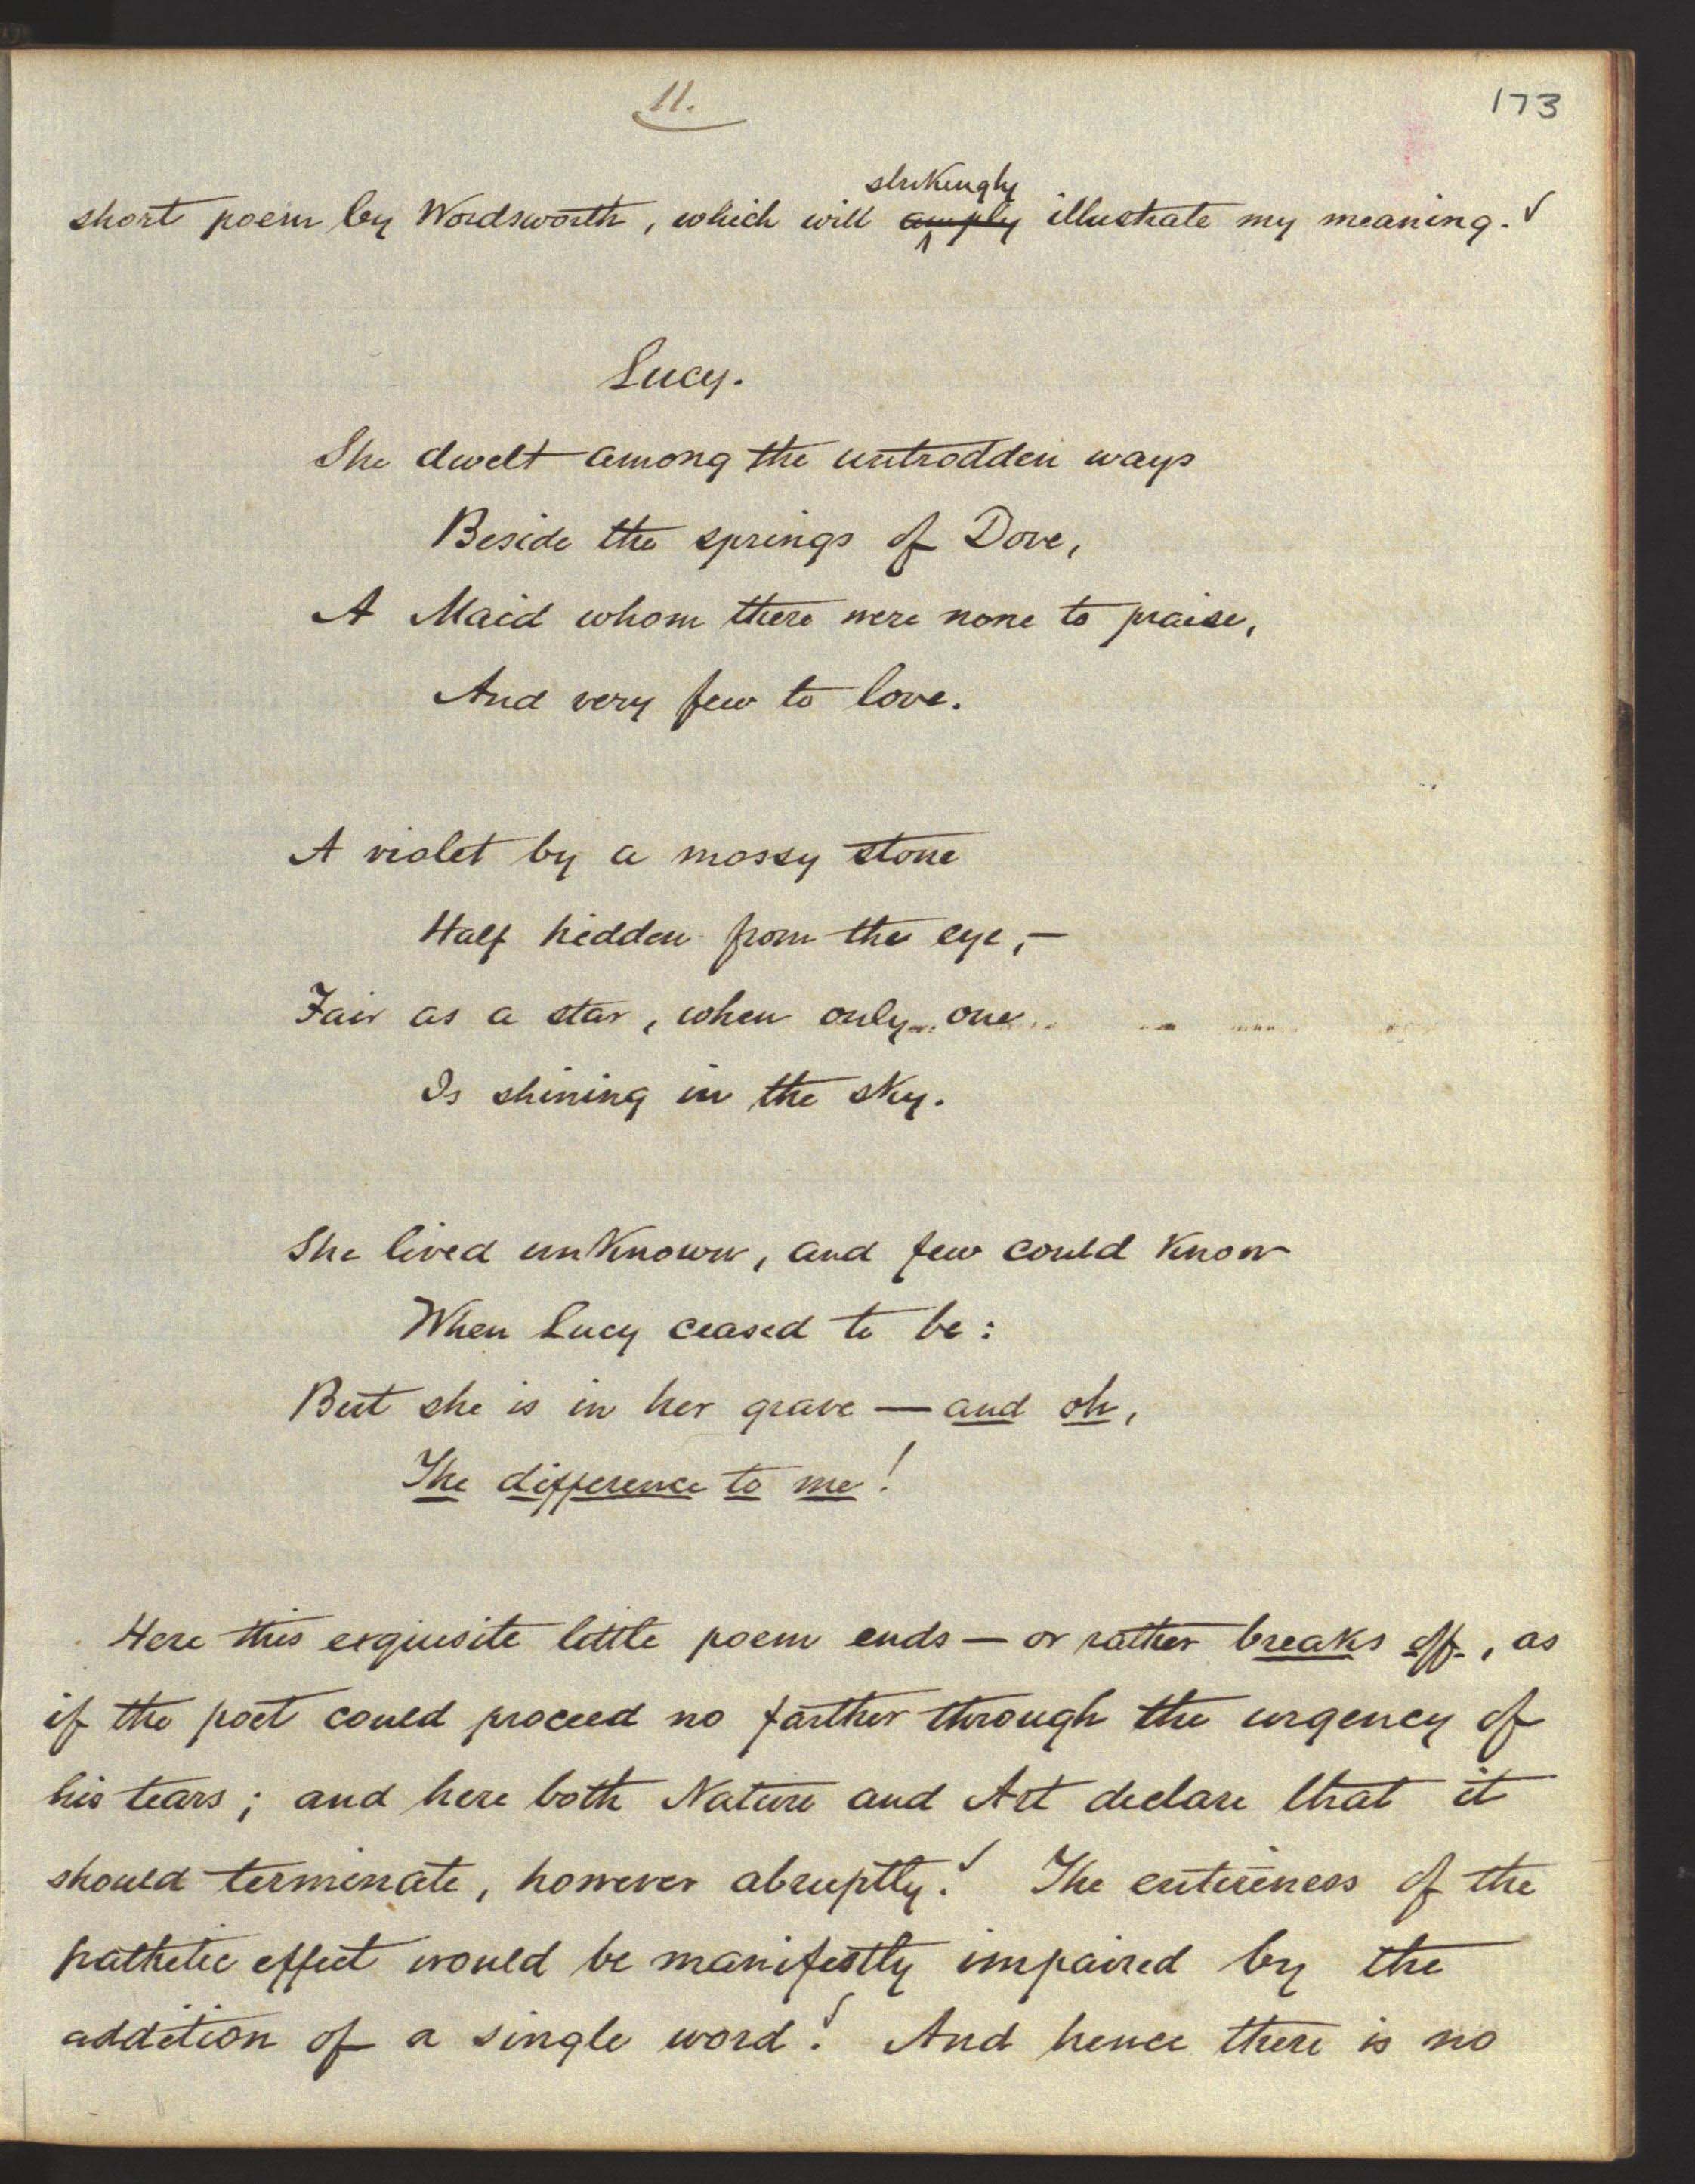 11.
173
strikingly
short poem by Wordsworth, which will amply illustrate my meaning.
Lucy.
She dwelt among the untrodden ways
Beside the springs of Dove,
A Maid whom there were none to praise,
And very few to love.
A violet by a mossy stone
Half hidden from the eye,—
Fair as a star, when only one
Is shining in the sky.
She lived unknown, and few could know
When Lucy ceased to be:
But she is in her grave — and oh,
The difference to me!
Here this exquisite little poem ends — or rather breaks off, as
if the poet could proceed no farther through the urgency of
his tears; and here both Nature and Art declare that it
should terminate, however abruptly. The entireness of the
pathetic effect would be manifestly impaired by the
addition of a single word. And hence there is no